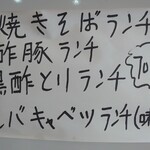 焼きそばランチ
酢豚ランチ
黒酢とりランチ
バキャベツランチ(味